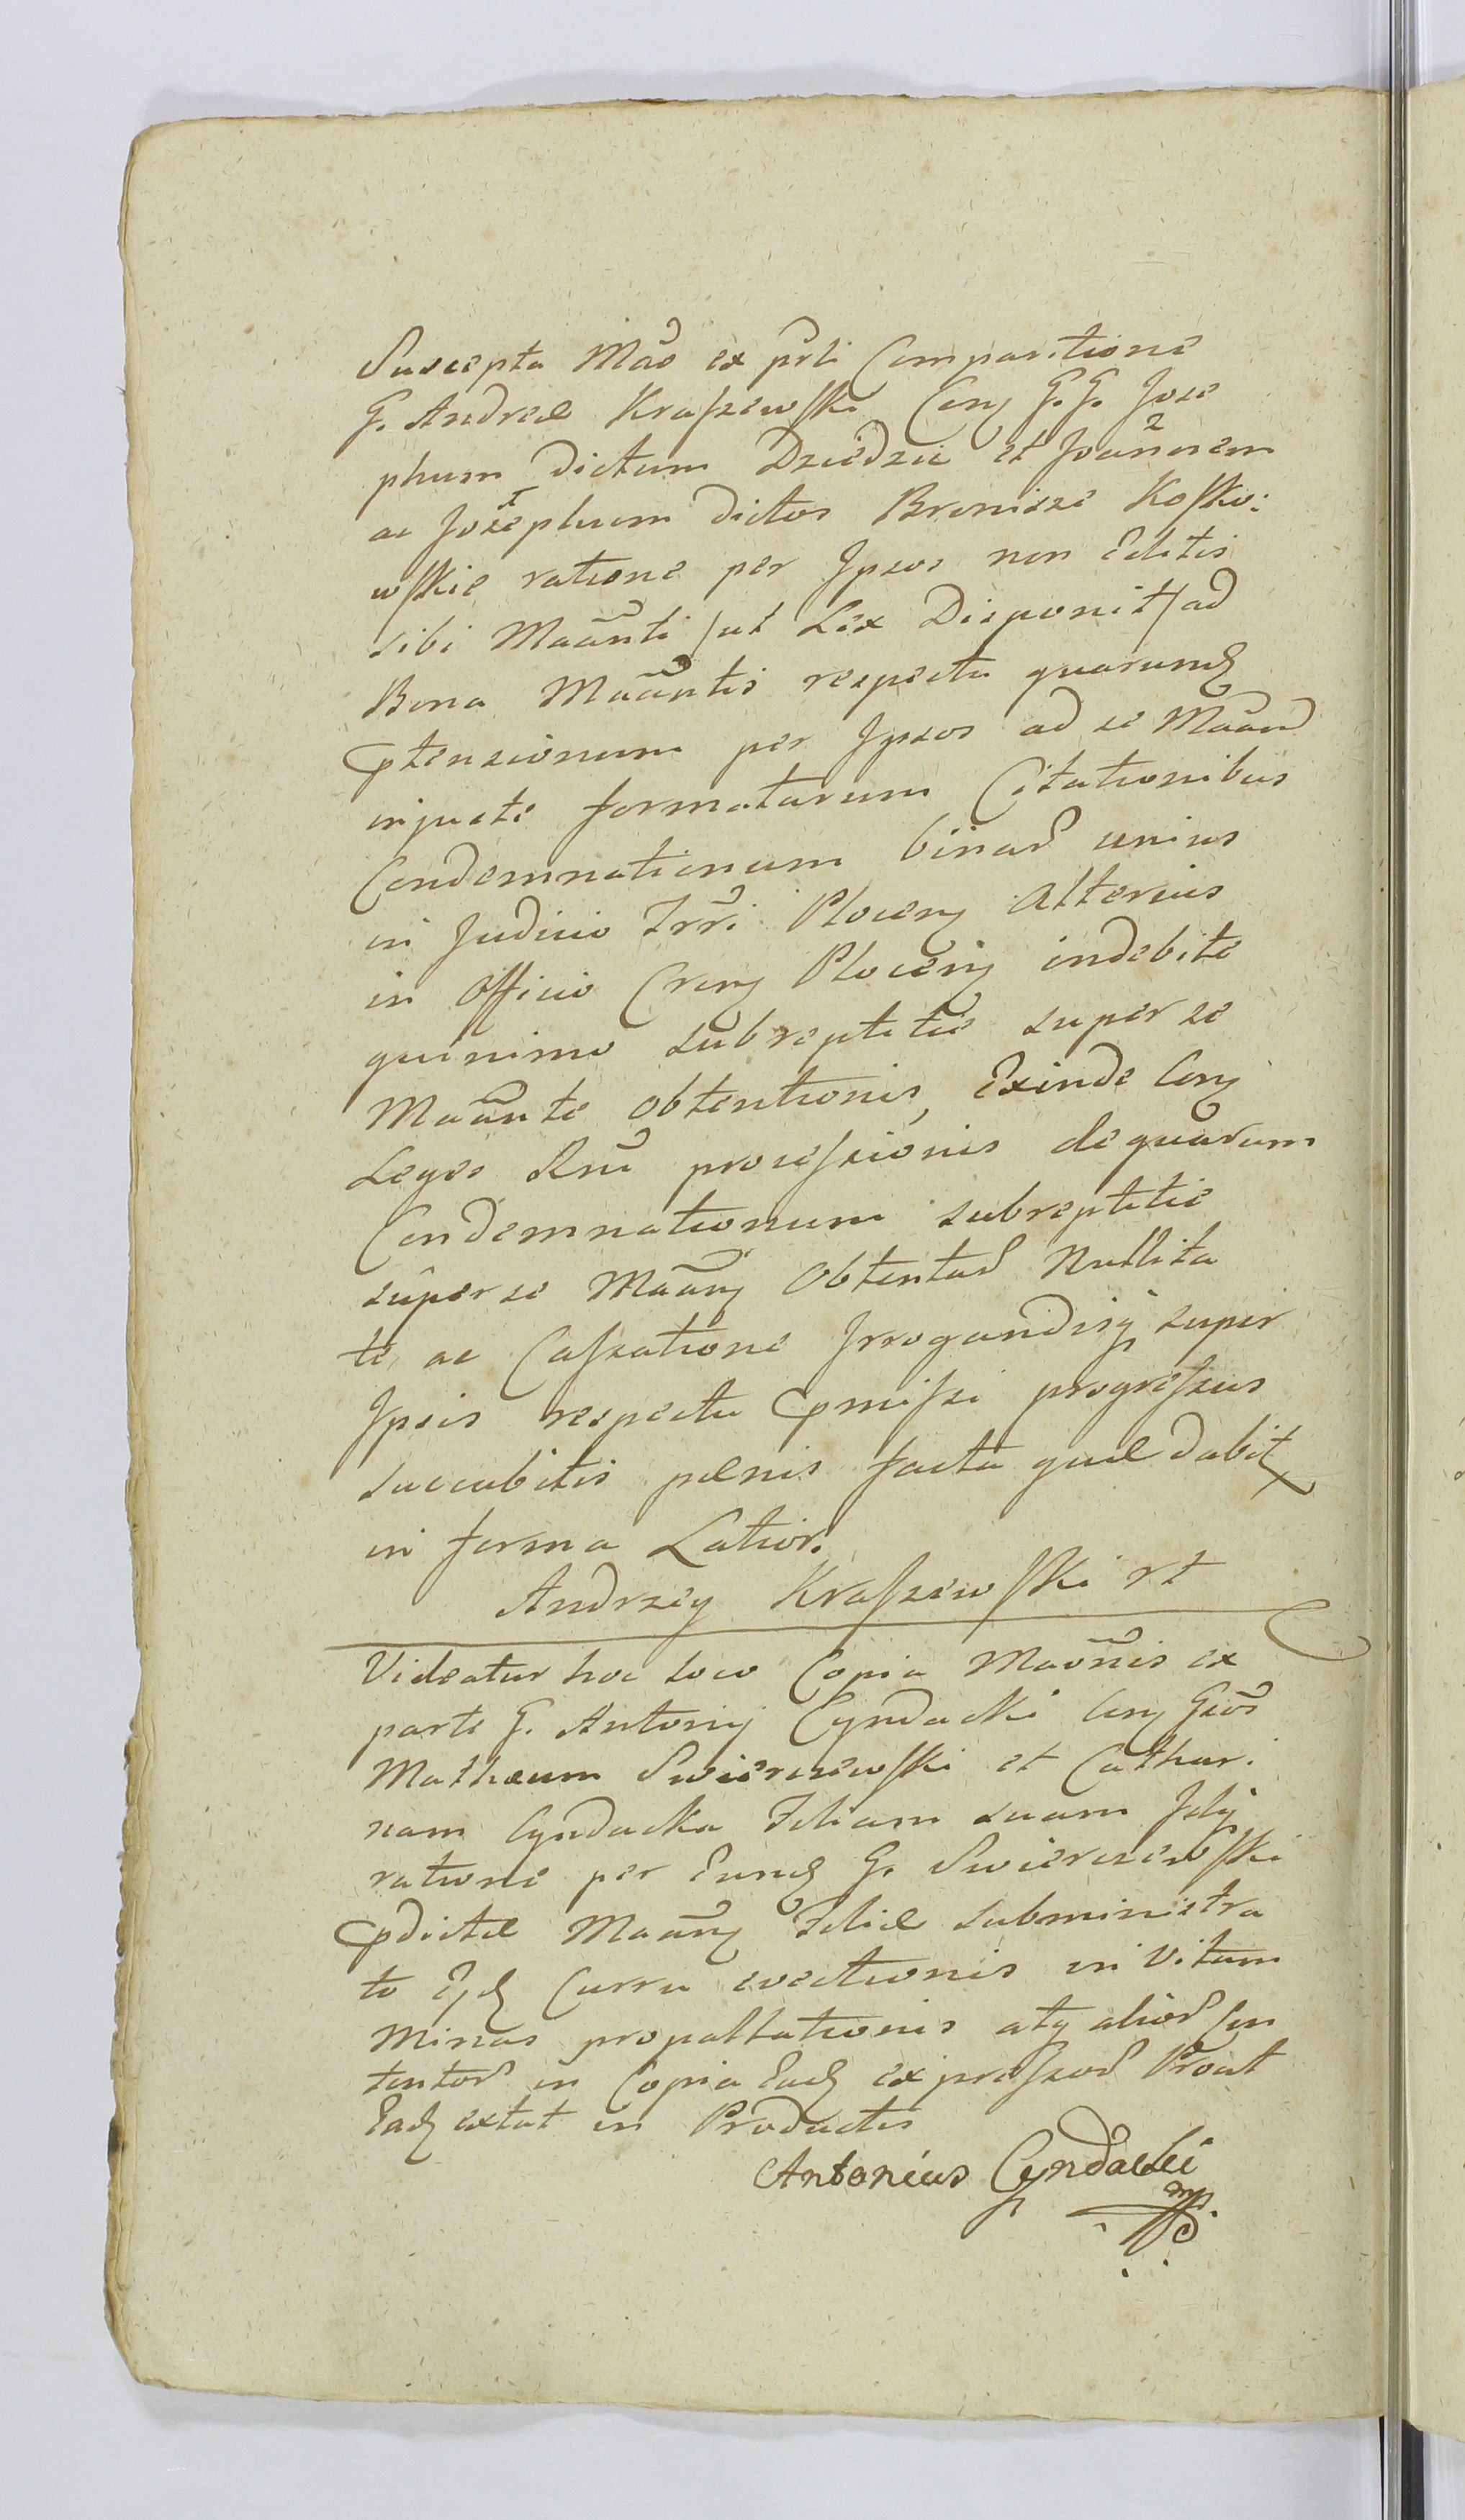 Suscepta Mão ex pñti Comparitione
G. Andreæ Kraszewski Con̄ G. G. Jose
phum dictum Dziedzic et Joãnnem 2
ac Josephum 1 dictos Bronisze Kosko:
wskie ratione per Ipsos non Editis
sibi Maãnti /ut Lex Disponit/ ad
Bona Maãntis respectu quarund
ptensionum per Ipsos ad se Maãn
injuste formatarum Citationibus
Condemnationum binar unius
in Judicio Trri Plocen alterius
in Officio Cren Plocen indebite
quinimo subreptitie super se
Maãnte obtentionis, Exinde Con
Leges Rni processionis de quarum
Condemnationum subreptitie
super se Maãn obtentar Nullita
te, ac Cassatione Irrogandisq super
Ipsis respectu pmissi progressus
succubitis pænis facta quæ dabit
in forma Latiori
Andrzey Kraszewski rt
Videatur hoc loco Copia Maõnis ex
parte G. Antonij Cyndacki Con Gsos
Mathæum Swierczewski et Cathari
nam Cyndacka Filiam suam
ratione per Eund G. Swierczewski
pdictæ Maãn Filiæ subministra
to Eid Curru evectionis in Vitam
Minas propallationis atq alior Con
tentor in Copia Ead expressor Prout
Ead extat in Productis
Antonius Cyndacki
mp.